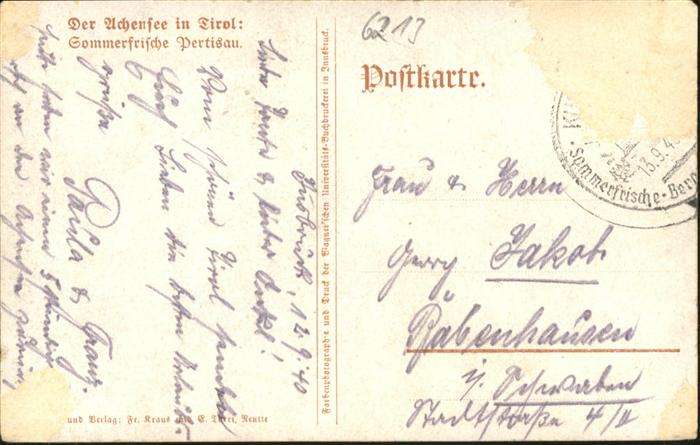 Der Achensee in Tirol:
Sommerfrische Pertisau.
6213
Postkarte.
13.9.4
Sommerfrische - Ber
Innsbruck, 12.9.40
Liebe Tante & lieber Onkel!
Vom schönen Tirol senden
Euch Lieben die besten Urlaubs-
grüße
Paula & Franz.
Heute haben wir einen
an den Achensee
Frau & Herrn
Georg Jakob
Babenhausen
i. Schwaben
Stadtstraße 4/II
Farbenphotographie und Druck der Wagner'schen Universitäts-Buchdruckerei in Innsbruck.
und Verlag: Fr. Kraus E. Reutte